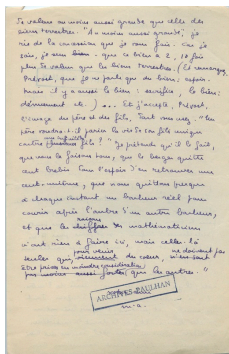 sa valeur au moins aussi grande que celle des
biens terrestres. "Au moins aussi grande", je
ris de la concession que je vous fais. Car je
sais, je sens bien que ce bien a 2, 10 fois
plus de valeur que les biens terrestres (Et remarquez,
Prévost, que je ne parle que du bien; espoir.
Mais il y a aussi le bien: sacrifice, le bien:
dénuement etc.) ... Et j'accepte, Prévost,
l'image du père et des fils, tout
père voudra-t-il parier la vie de son fils unique
contre ?" Je prétends qu'il le fait,
que nous le faisons tous, que le berger quitte
cent brebis dans l'espoir d'en retrouver une
cent-unième, que nous quittons presque
à chaque instant un bonheur réel pour
courir après l'ombre d'un autre bonheur,
et que les mathématiques
n'ont rien à faire ici, mais celles-là
seules qui, du coeur, ne doivent pas
être prises en moindre considération
que les autres."
ARCHIVES PAULHAN